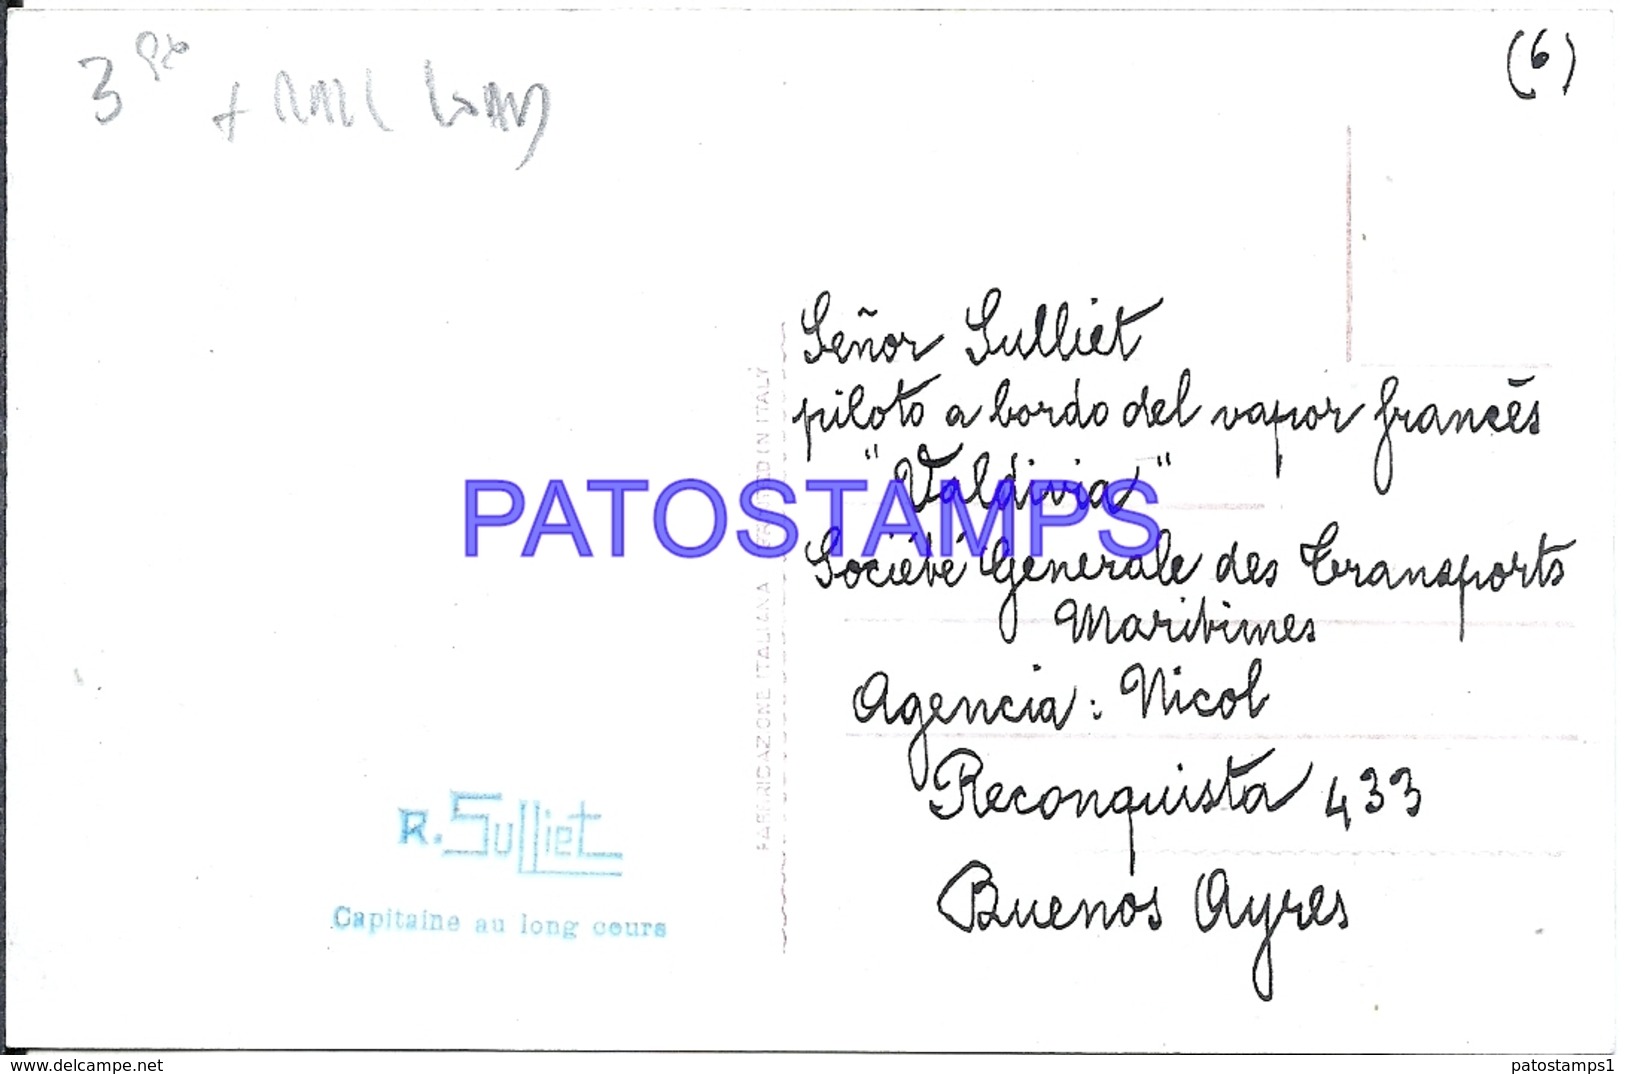 3
(6)
Señor Sulliet
piloto a bordo del vapor francés
"Valdivia"
PATOSTAMPS
Société Generale des Transports
Maritimes
Agencia: Nicol
Reconquista 433
Buenos Ayres
FABBRICAZIONE ITALIANA IN ITALY
R. Sulliet
Capitaine au long cours
www.delcampe.net
patostamps1